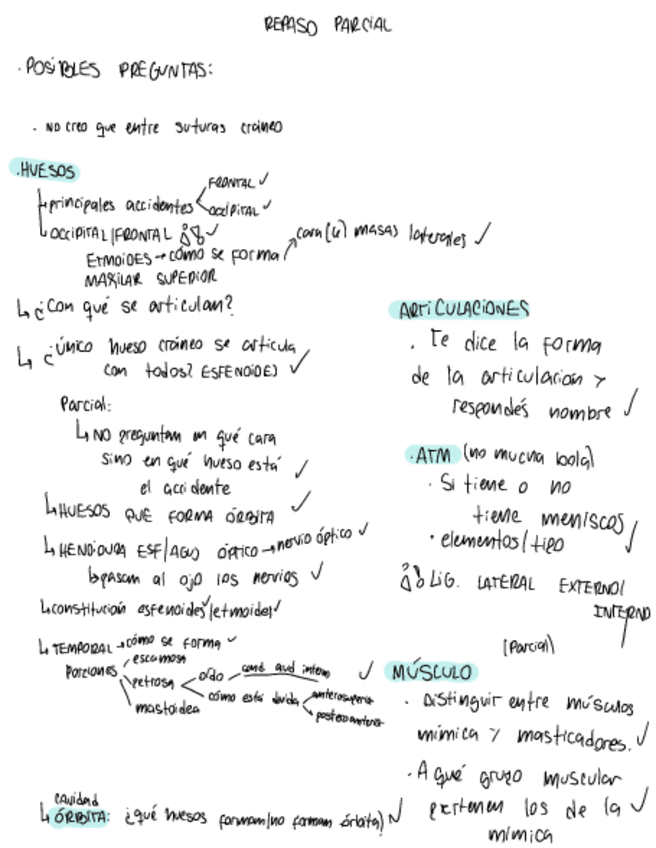 REPASO PARCIAL
· POSIBLES PREGUNTAS:
· NO creo que entre suturas cráneo
· HUESOS
principales accidentes
FRONTAL ✓
OCCIPITAL ✓
OCCIPITAL/FRONTAL ✓
ETMOIDES → cómo se forma
cara (4) masas laterales ✓
MAXILAR SUPERIOR
↳ ¿Con qué se articulan?
↳ ¿único hueso cráneo se articula
con todos? ESFENOIDES ✓
Parcial:
↳ NO preguntan en qué cara
sino en qué hueso está ✓
el accidente
↳ HUESOS QUE FORMA ÓRBITA ✓
↳ HENDIDURA ESF/AGUJ ÓPTICO → nervio óptico ✓
↳ pasan al ojo los nervios ✓
↳ constitución esfenoides/etmoides ✓
↳ TEMPORAL → cómo se forma ✓
Porciones
escamosa
petrosa
oído
cond aud intern ✓
cómo está divida
anterosuperior
posteroanterior
mastoidea
cavidad
↳ ÓRBITA: ¿qué huesos forman/no forman órbita) ✓
ARTICULACIONES
· Te dice la forma
de la articulación y
respondés nombre ✓
· ATM (no mucha bola)
· Si tiene o no
tiene meniscos ✓
· elementos/tipo
LIG. LATERAL EXTERNO/
INTERNO
(Parcial)
MÚSCULO
· Distinguir entre músculos
mímica y masticadores. ✓
· A qué grupo muscular
pertenen los de la ✓
mímica